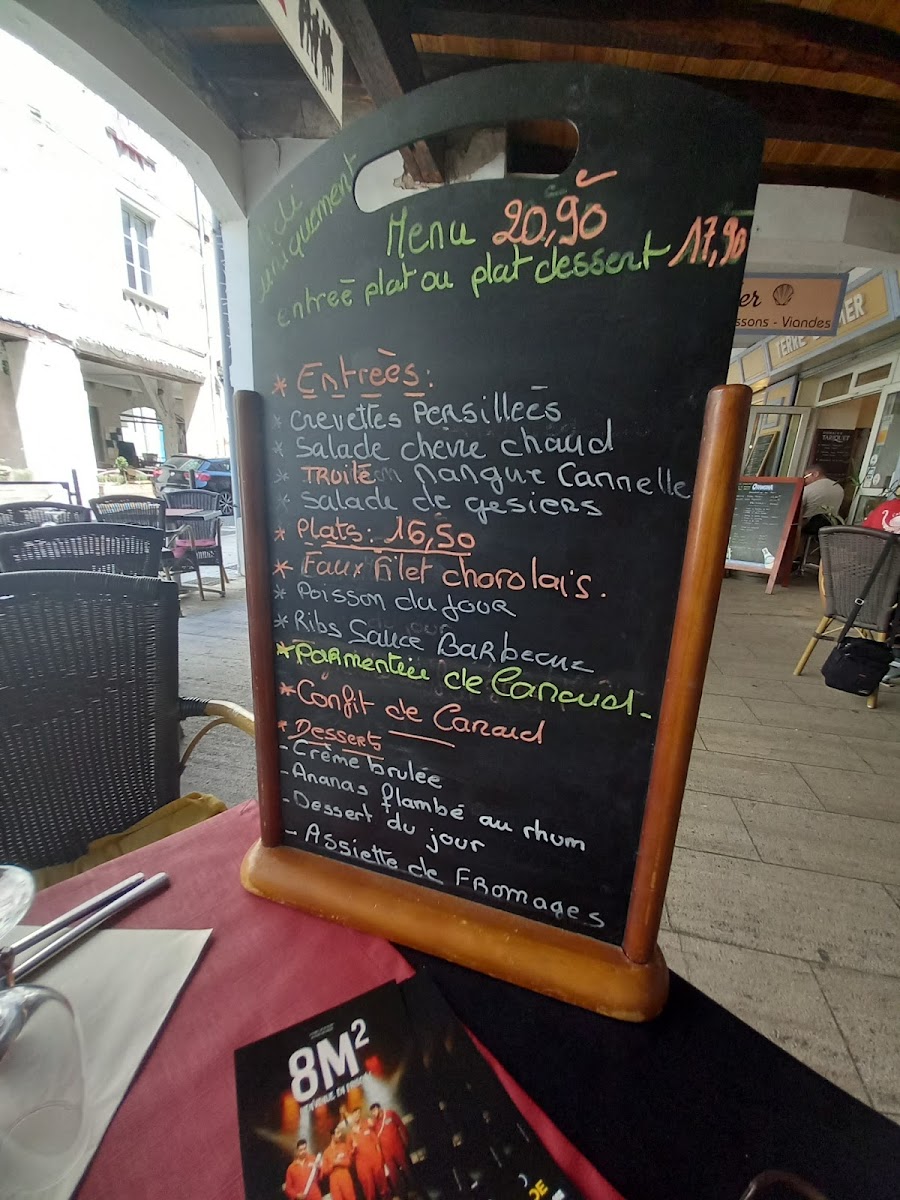 uniquement
Menu 20,90
entreé plat ou plat dessent 17,90
* Entreés:
* Crevettes Persilleés
* Salade chevre chaud
* TRuite Mangue Cannelle
* Salade de gesiers
* Plats: 16,50
* Faux filet chorolais.
* Poisson du Jour
* Ribs Sauce Barbecue
* PaRmentiee de Canaud.
* Confit de Canard
* Desserts
- Crème brulée
- Ananas flambé au rhum
- Dessert du jour
- Assiette de FRomages
8M²
ssons - Viandes
TARIQUET